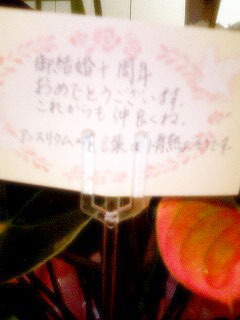 御結婚十周年
おめでとうございます。
これからも仲良くね。
アンスリウムの花言葉は「情熱」です。